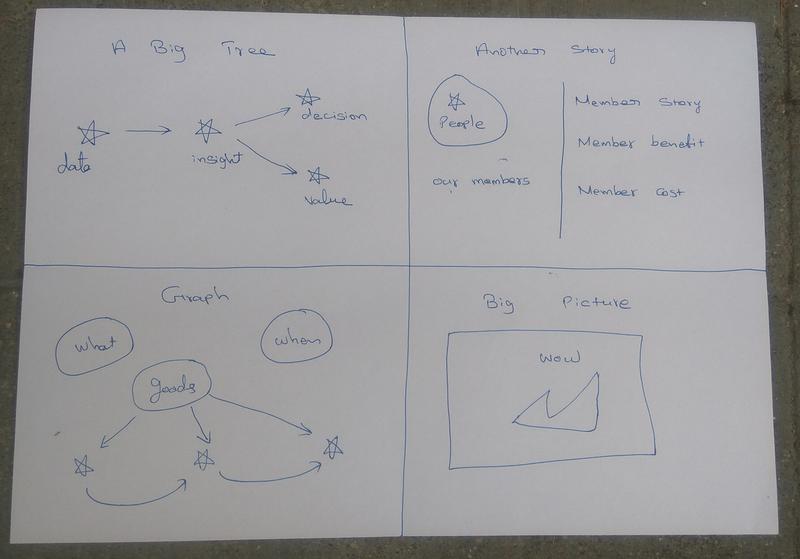 A Big Tree
data
insight
decision
value
Another Story
People
our members
Member Story
Member benefit
Member cost
Graph
what
when
goods
Big Picture
wow